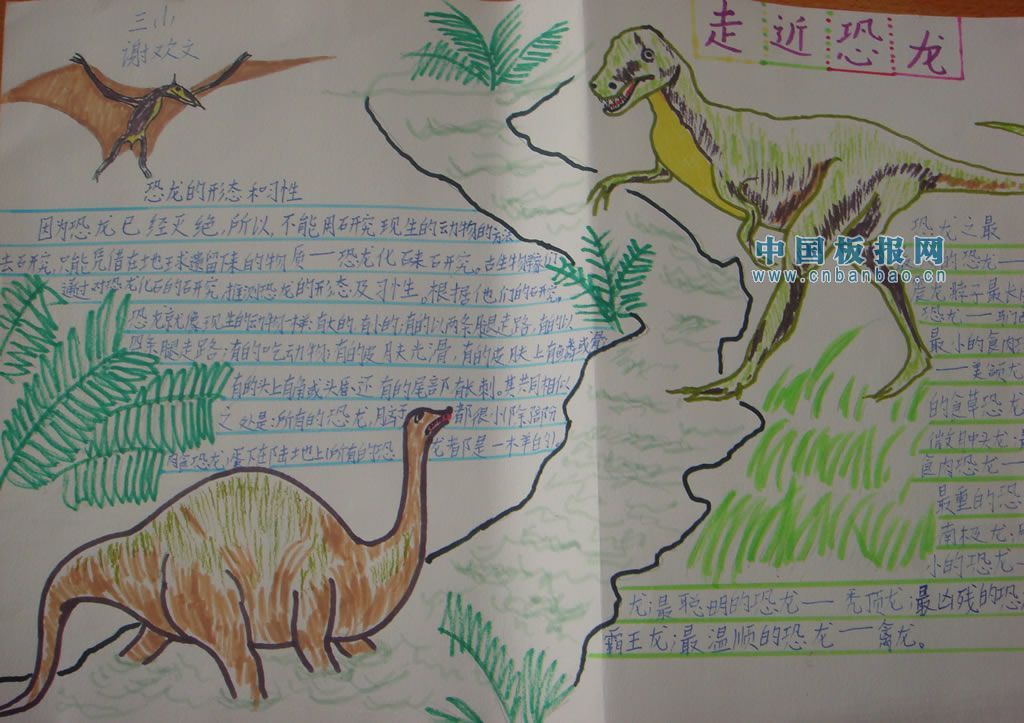 三小
谢欢文
走近恐龙
恐龙的形态和习性
因为恐龙已经灭绝,所以,不能用研究现生的动物的方法
去研究,只能凭借在地球遗留下来的物质——恐龙化石来研究。古生物学家们
通过对恐龙化石的研究,推测恐龙的形态及习性。根据他们的研究,
恐龙就像现生的动物一样:有大的,有小的;有的以两条腿走路,有的以
四条腿走路;有的吃动物;有的皮肤光滑,有的皮肤上有鳞或
有的头上有角或头盾,还有的尾部有长刺。其共同相似
之处是:所有的恐龙,
都很小
肉食恐龙,蛋下在陆地上,所有的恐
龙都是一
中国板报网
www.cnbanbao.cn
恐龙之最
的恐龙—
龙脖子最长的
恐龙——马门
最小的食肉
——美颌龙
的食草恐龙
食肉恐龙—
最重的恐
南极龙,
小的恐龙—
龙最聪明的恐龙——秃顶龙最凶残的恐
霸王龙最温顺的恐龙——禽龙。